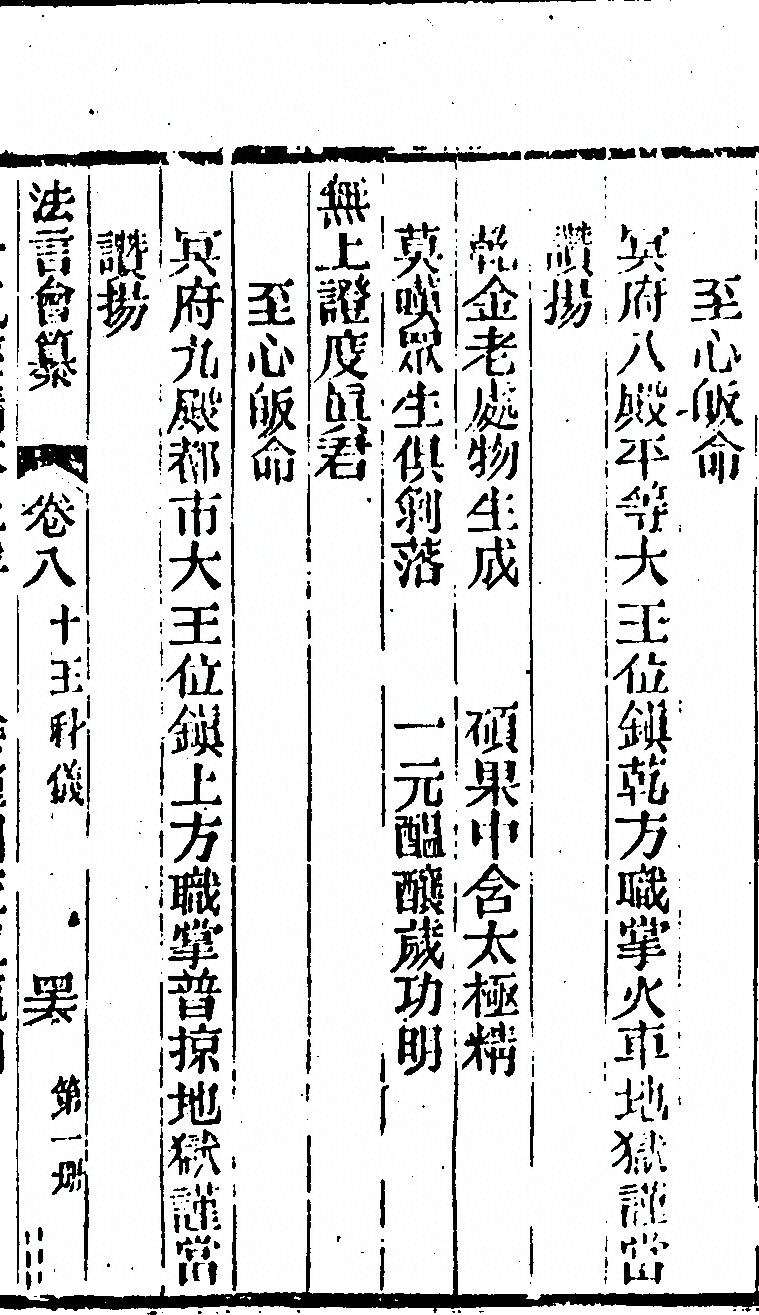 至心皈命
冥府八殿平等大王位鎮乾方職掌火車地獄謹當
讚揚
乾金老處物生成　碩果中含太極精
莫嘆眾生俱剝落　一元醞釀歲功明
無上證度眞君
至心皈命
冥府九殿都市大王位鎮上方職掌普掠地獄謹當
讚揚
法言會纂　卷八　十王科儀　第一